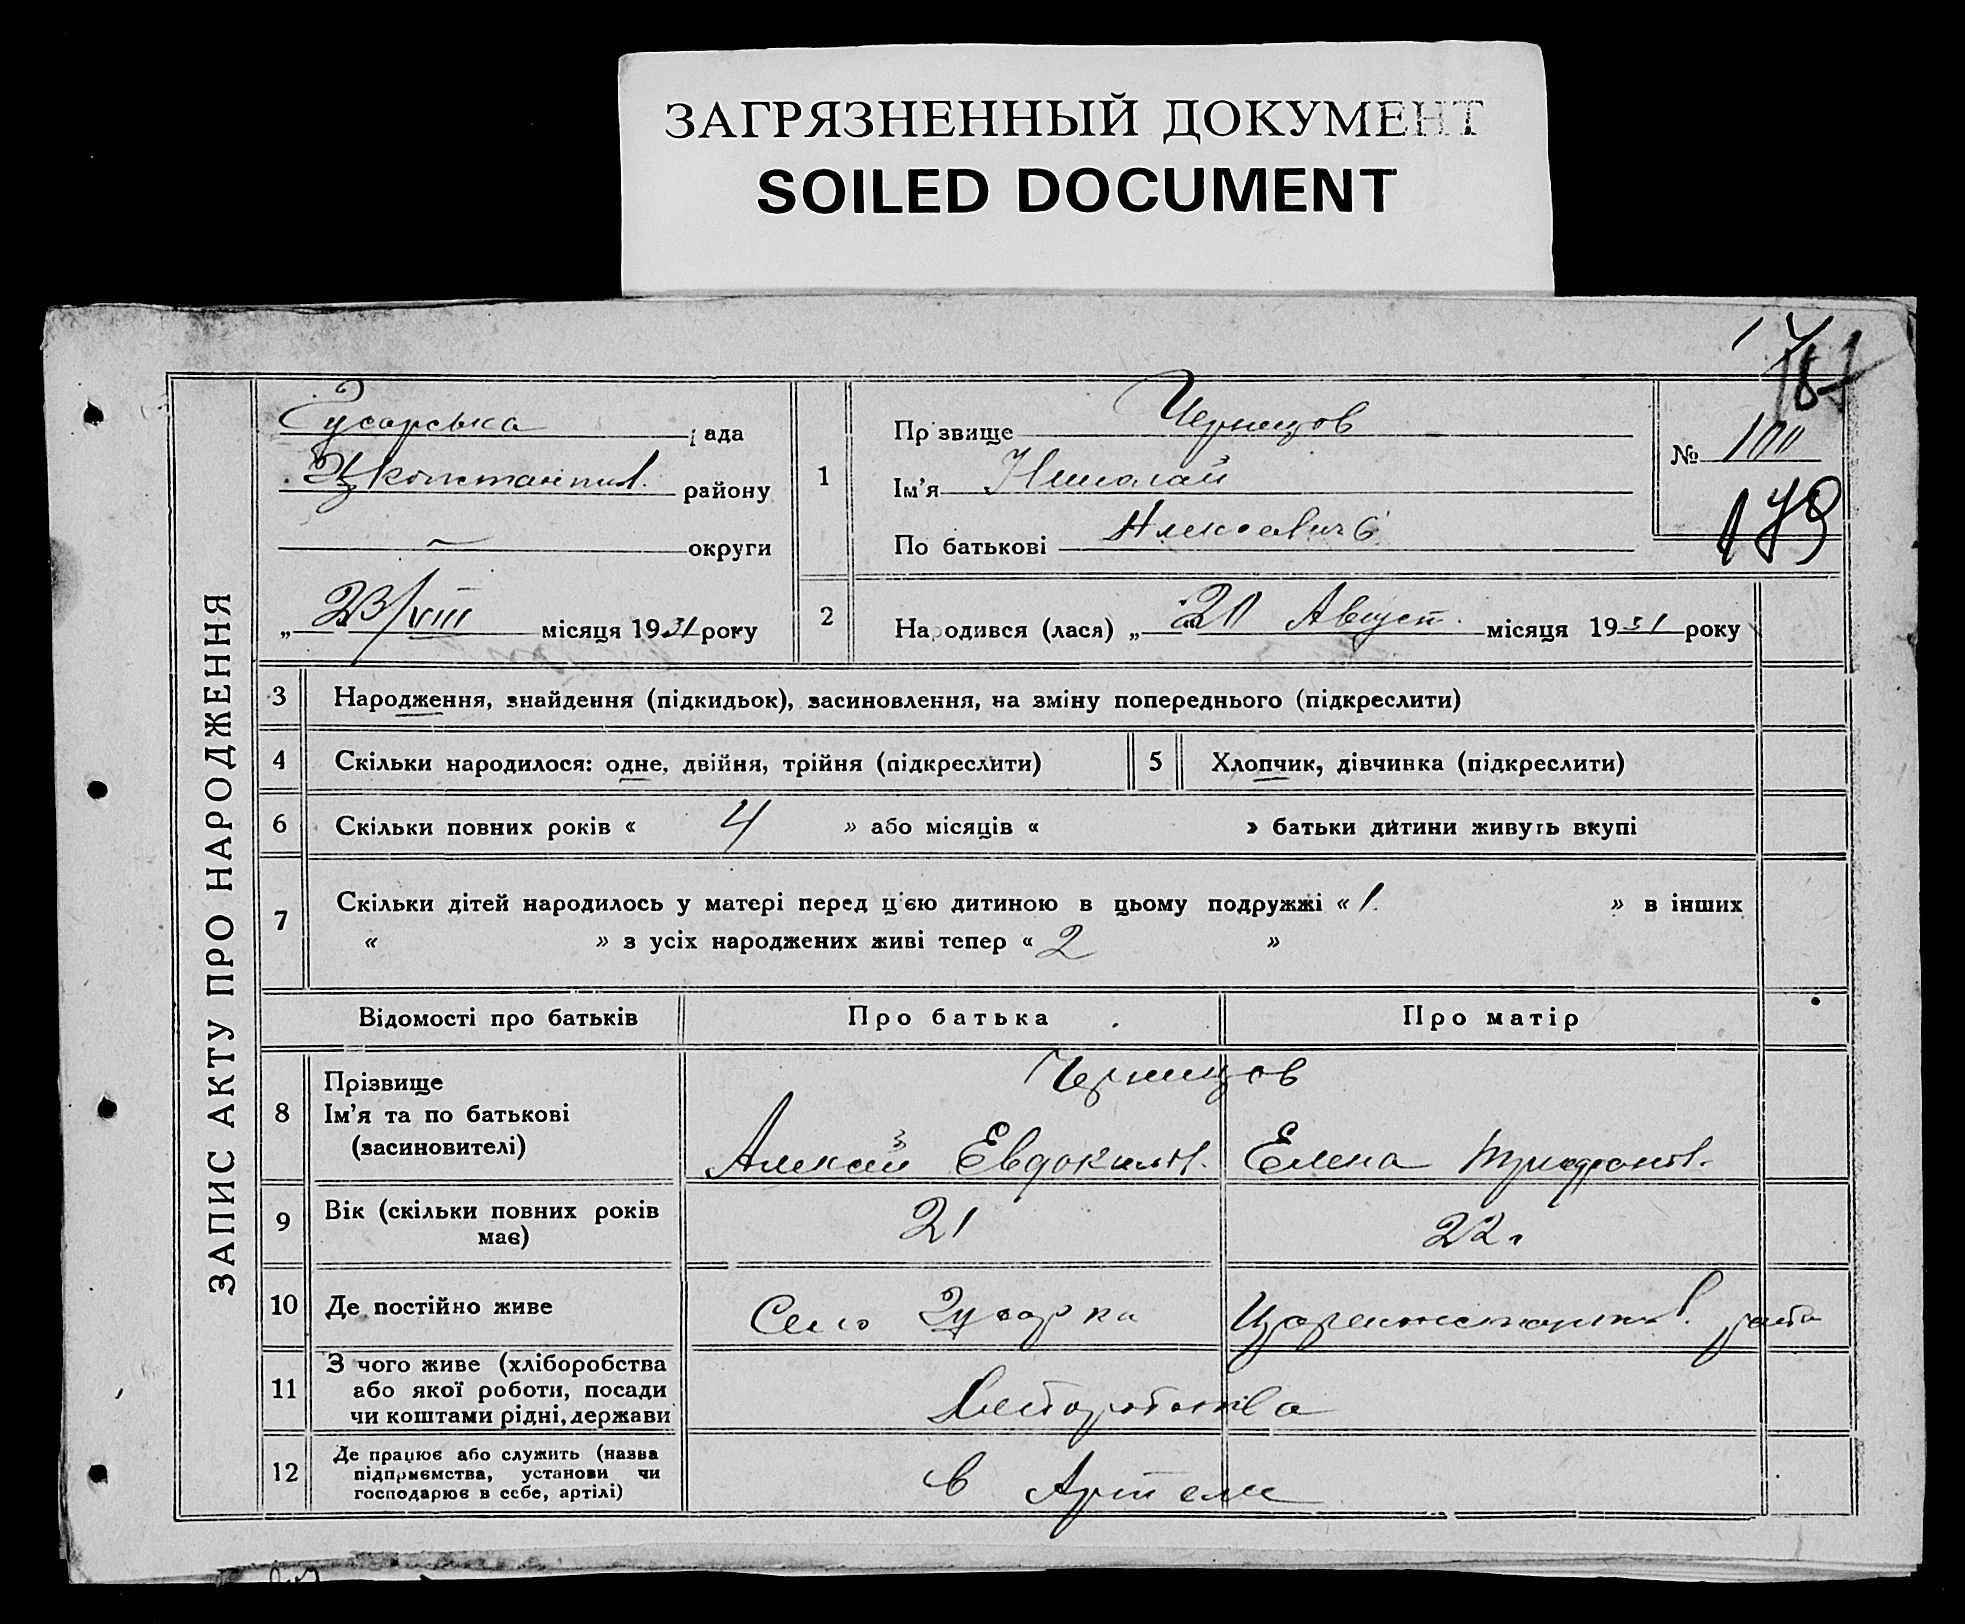 ЗАГРЯЗНЕННЫЙ ДОКУМЕНТ
SOILED DOCUMENT
181
ЗАПИС АКТУ ПРО НАРОДЖЕННЯ
Гусарська рада
Цконстантинов. району
— округи
„23/VIII місяця 1931 року
1
Прізвище Чернецов
Ім’я Николай
По батькові Алексеевичь
№ 100
179
2
Народився (лася) „20 Август. місяця 1931 року
3 Народження, знайдення (підкидьок), засиновлення, на зміну попереднього (підкреслити)
4 Скільки народилося: одне, двійня, трійня (підкреслити)
5 Хлопчик, дівчинка (підкреслити)
6 Скільки повних років « 4 » або місяців « » батьки дитини живуть вкупі
7 Скільки дітей народилось у матері перед ц'єю дитиною в цьому подружжі « 1 » в інших
« » з усіх народжених живі тепер « 2 »
Відомості про батьків Про батька Про матір
8 Прізвище
Ім’я та по батькові
(засиновителі)
Чернецов
Алексей Евдоким. Елена Трифонов.
9 Вік (скільки повних років
має)
21 22 г
10 Де постійно живе Село Гусарка Цареконстантинов. района
11 З чого живе (хліборобства
або якої роботи, посади
чи коштами рідні, держави
Хлеборобства
12 Де працює або служить (назва
підприємства, установи чи
господарює в себе, артілі)
в Артели